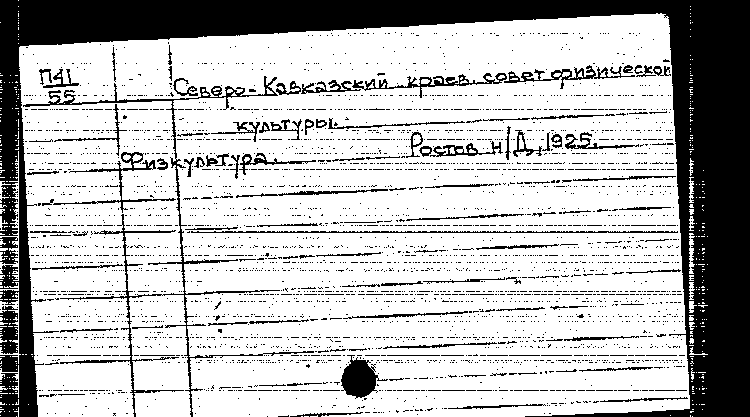 П41
55
Северо-Кавказский краев. совет физической
культуры.
Физкультура. Ростов н/Д, 1925.